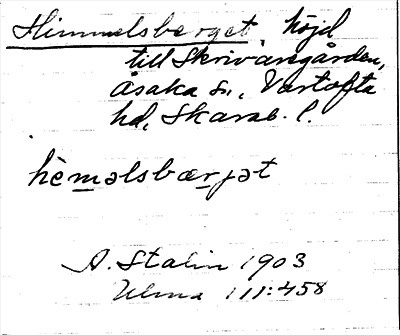 Himmelsberget höjd
till Skrivaregården,
Åsaka sn., Vartofta
hd, Skarab. l.
hèməlsbærjət
A. Stalin 1903
Ulma 111:458